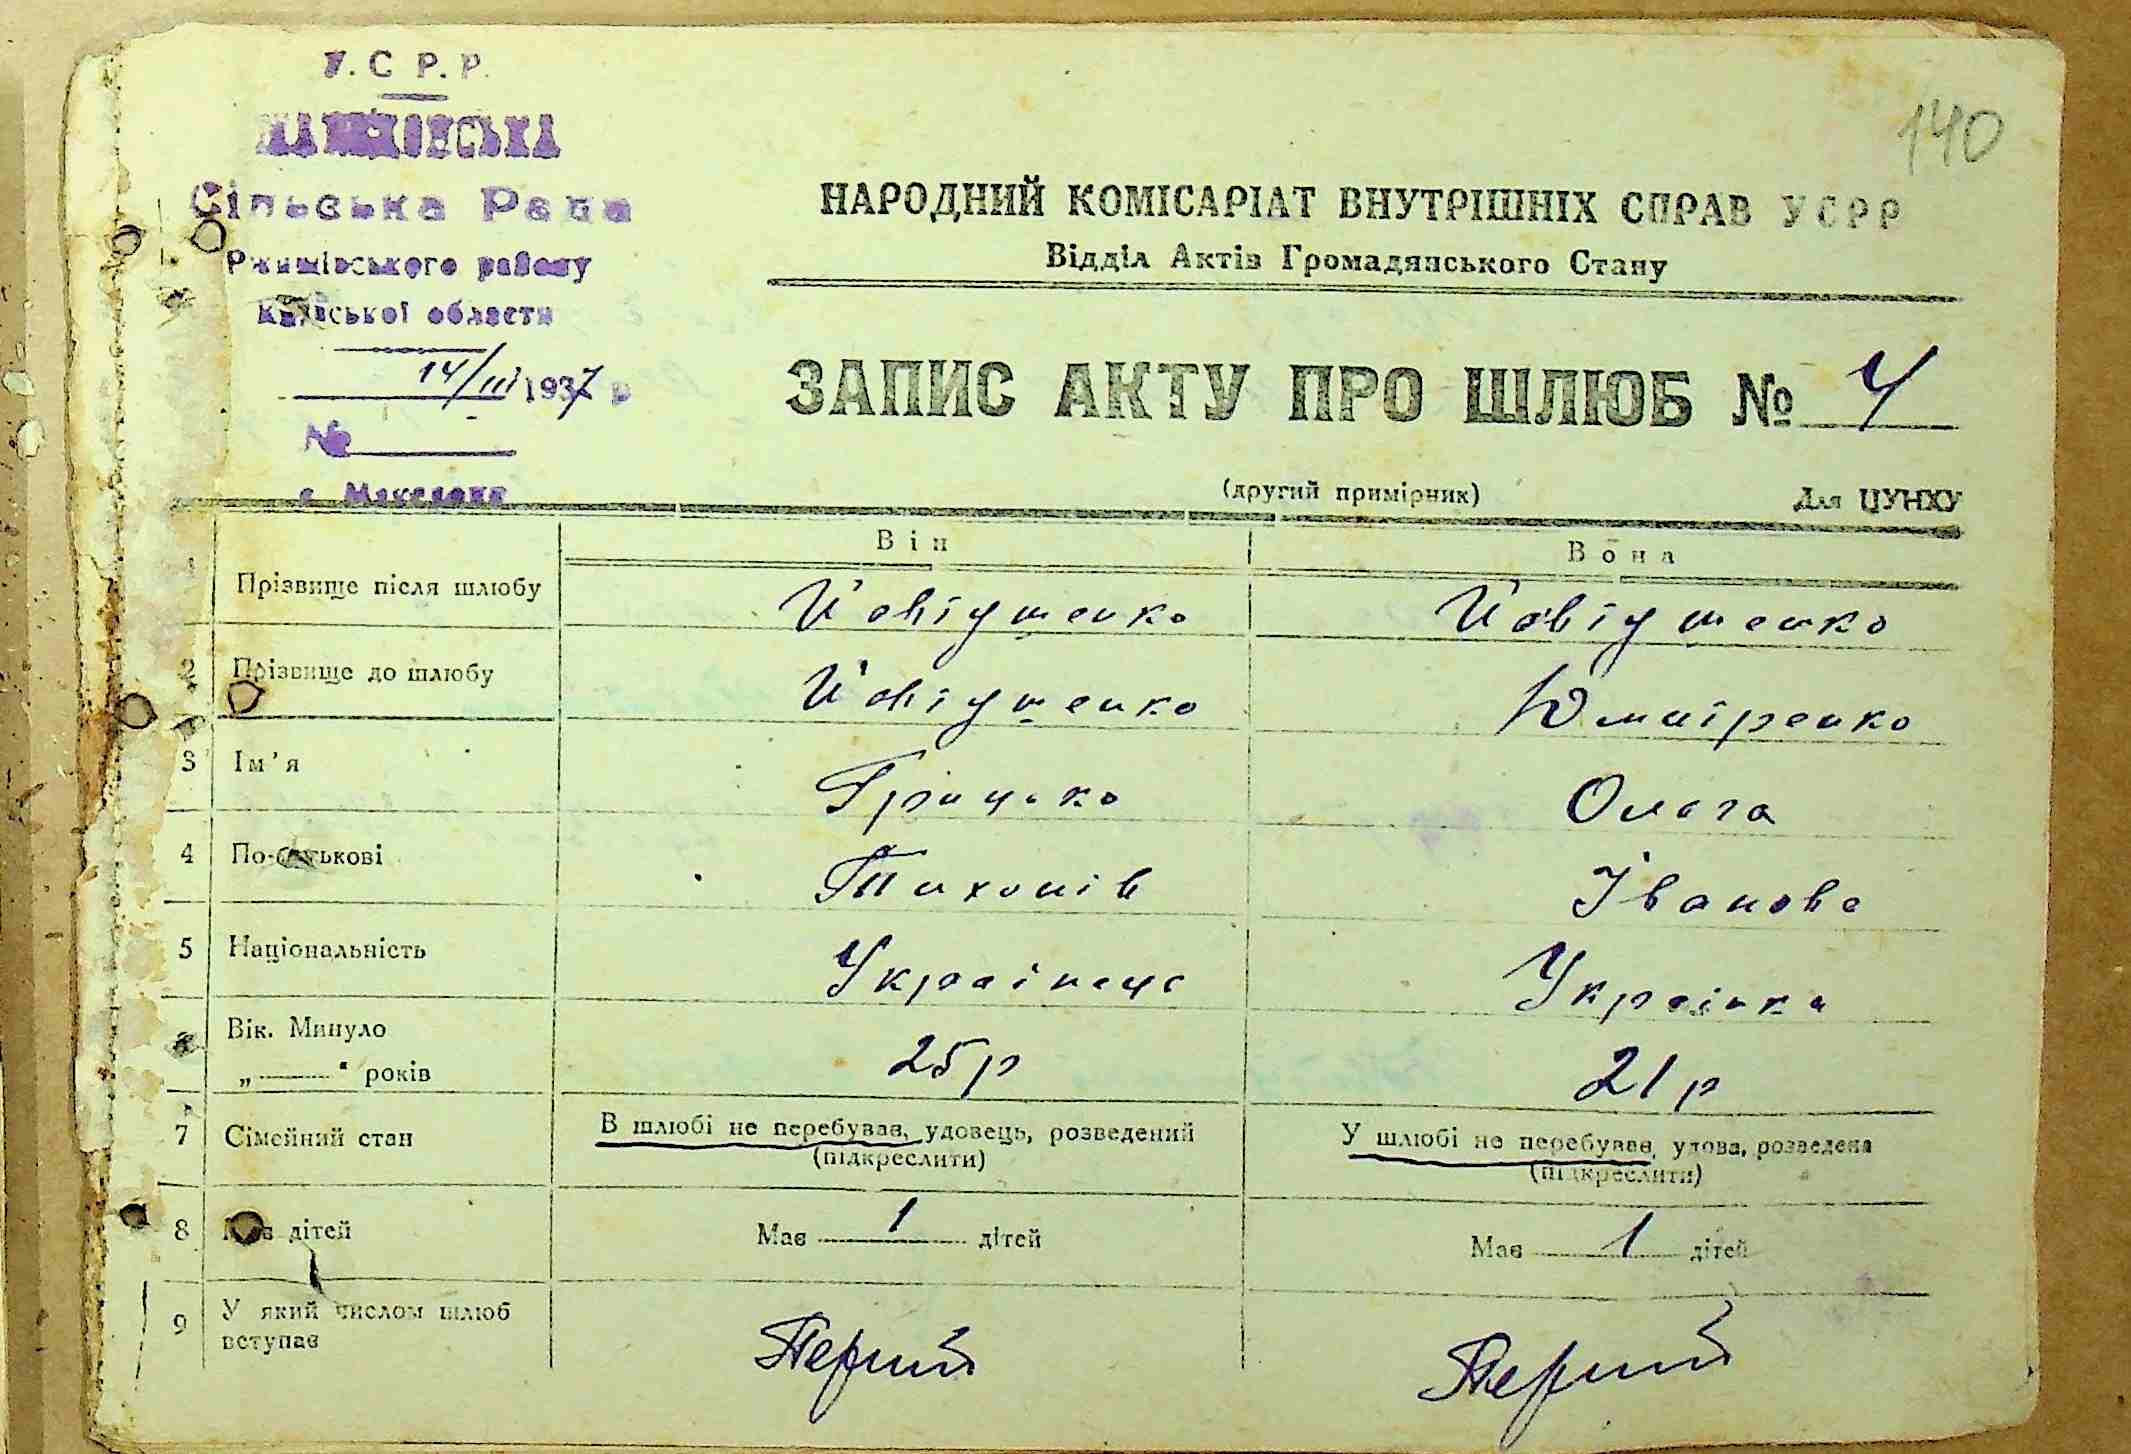 У. С Р. Р.
140
Сільська Рада
НАРОДНИЙ КОМІСАРІАТ ВНУТРІШНІХ СПРАВ УСРР
Ржищівського району
Відділ Актів Громадянського Стану
Київської области
14/III 1937 р
ЗАПИС АКТУ ПРО ШЛЮБ № 4
№
(другий примірник) Для ЦУНХУ
Він Вона
1 Прізвище після шлюбу Йовтушенко Йовтушенко
2 Прізвище до шлюбу Йовтушенко
3 Ім'я Грицько Ольга
4 По-батькові Тихонів Іванова
5 Національність Українець Українка
Вік. Минуло
„ “ років 25 р 21 р
7 Сімейний стан В шлюбі не перебував, удовець, розведений У шлюбі не перебував, удова, розведена
(підкреслити) (підкреслити)
8 Має дітей Має 1 дітей Має 1 дітей
9 У який числом шлюб
вступає Перший Перший